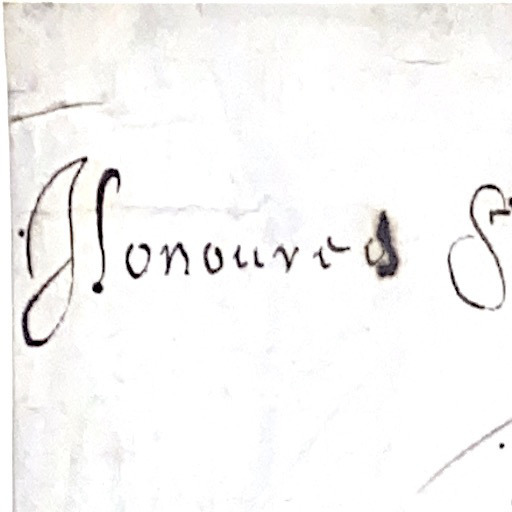 Honoured S